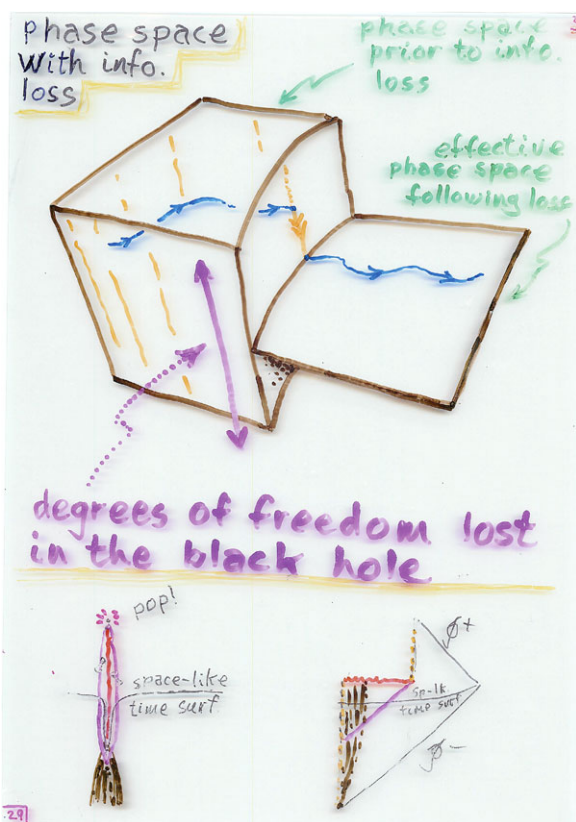 phase space
With info.
loss
phase space
prior to info.
loss
effective
phase space
following loss
degrees of freedom lost
in the black hole
pop!
space-like
time surf
sp-lk.
time surf
29